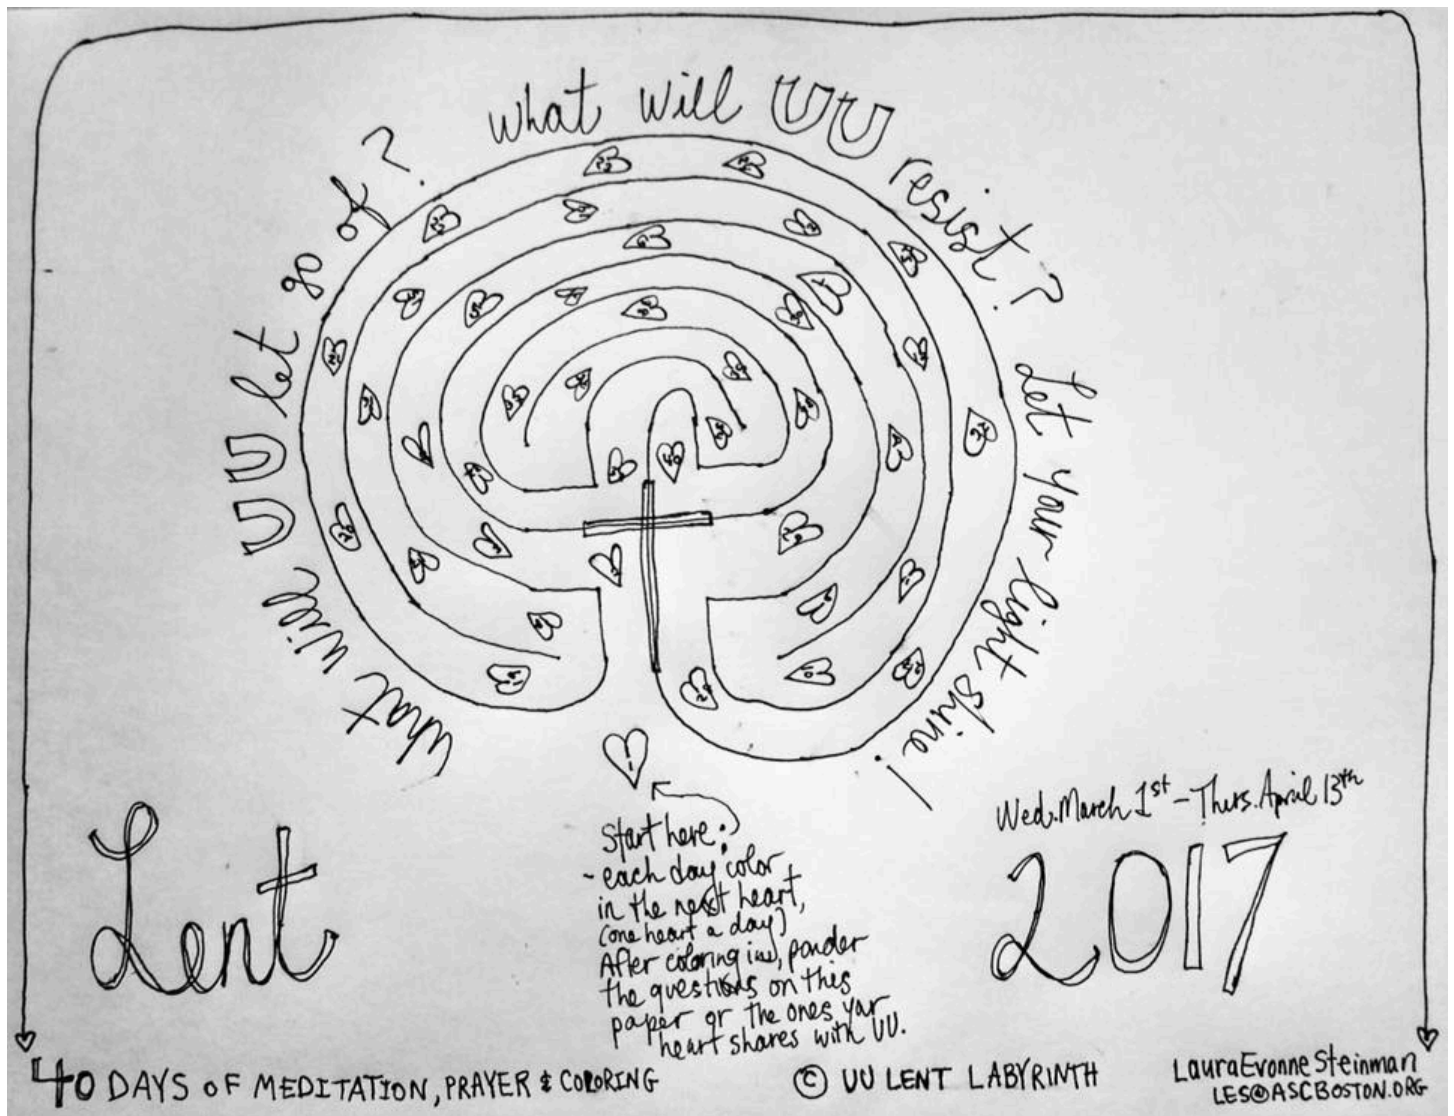 What will UU let go of?
what will UU resist?
Let your light shine!
1
Start here:
- each day color
in the next heart,
(one heart a day)
After coloring in, ponder
the questions on this
paper or the ones your
heart shares with UU.
Lent
Wed. March 1st - Thurs. April 13th
2017
40 DAYS OF MEDITATION, PRAYER & COLORING
© UU LENT LABYRINTH
LauraEvonneSteinman
LES@ASCBOSTON.ORG